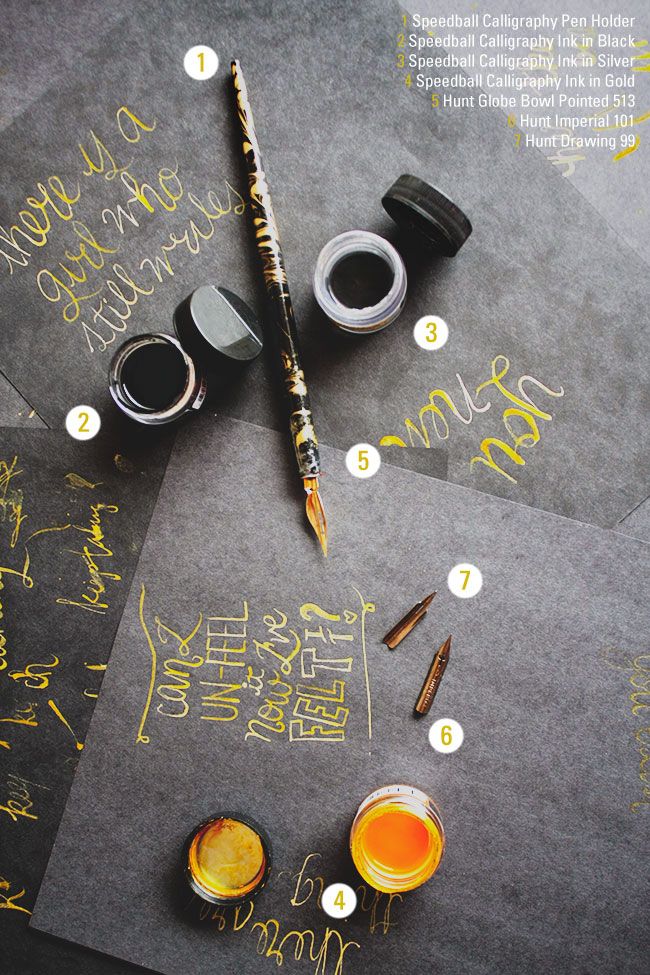 1 Speedball Calligraphy Pen Holder
2 Speedball Calligraphy Ink in Black
3 Speedball Calligraphy Ink in Silver
4 Speedball Calligraphy Ink in Gold
5 Hunt Globe Bowl Pointed 513
6 Hunt Imperial 101
7 Hunt Drawing 99
1
there is a
girl who
still writes
3
2
you
5
7
can I
UN-FEEL
it
now I've
FELT it?
6
4
thing
there are
key